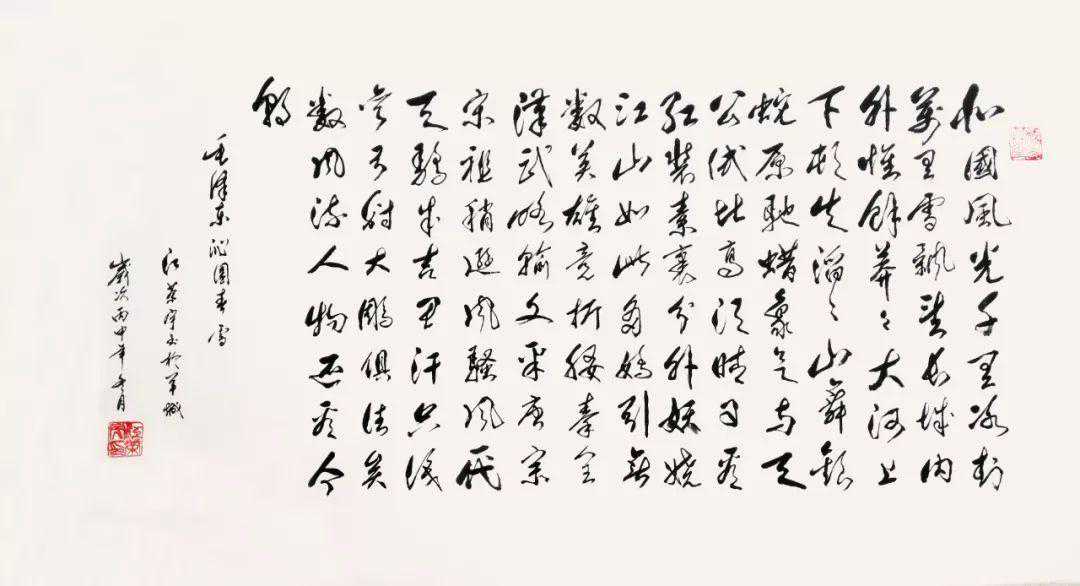 北國風光千里冰封
萬里雪飄望長城內
外惟餘莽々大河上
下頓失滔々山舞銀
蛇原馳蜡象欲与天
公試比高須晴日看
紅裝素裹分外妖嬈
江山如此多嬌引無
数英雄竞折腰秦皇
漢武略輸文采唐宗
宋祖稍遜風騷代
天驕成吉思汗只識
彎弓射大鵰俱往矣
数風流人物还看今
朝
毛澤東沁園春雪
江宇书於羊城
歲次丙申年月